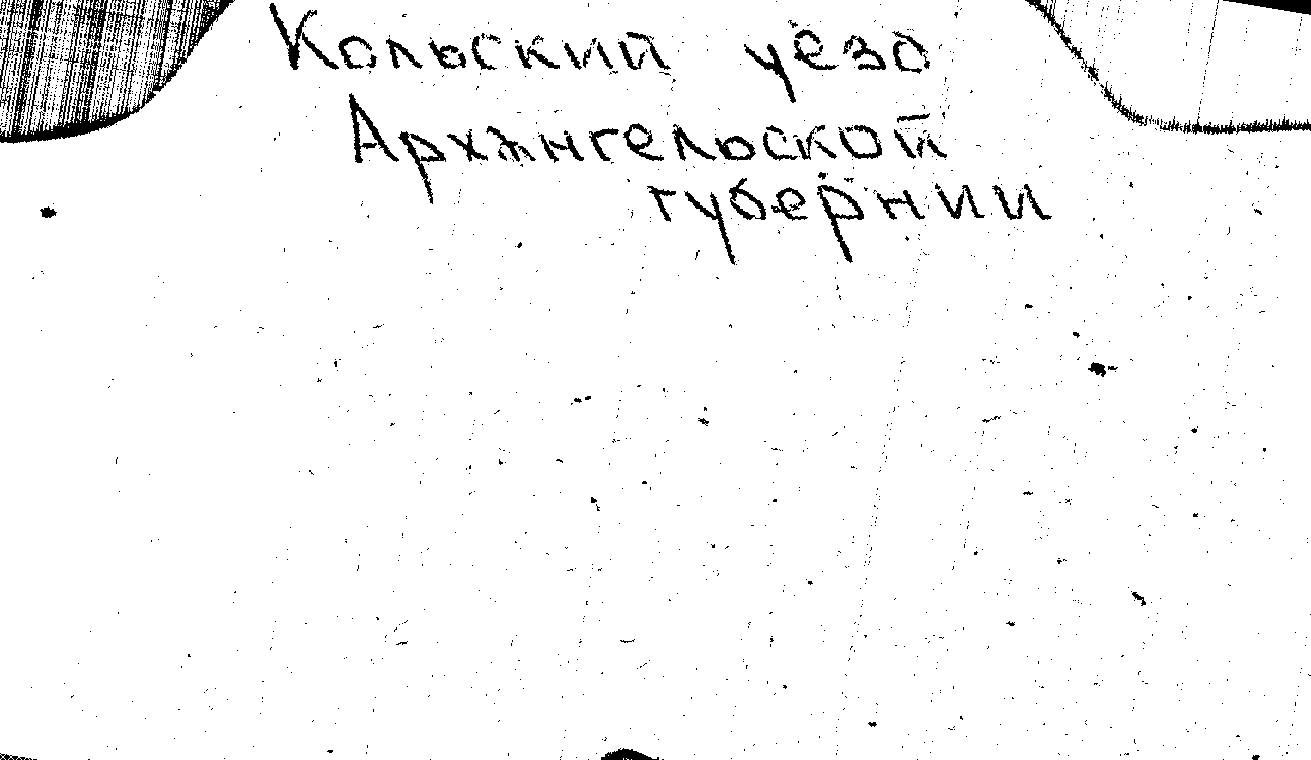 Кольский уезд
Архангельской
губернии